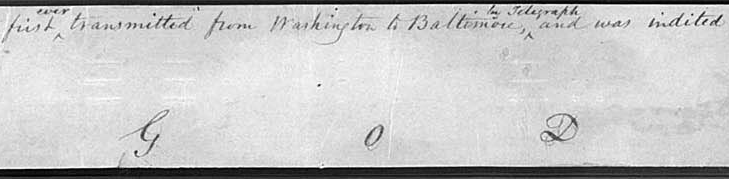 first ever transmitted from Washington to Baltimore, by Telegraph and was indited
G O D